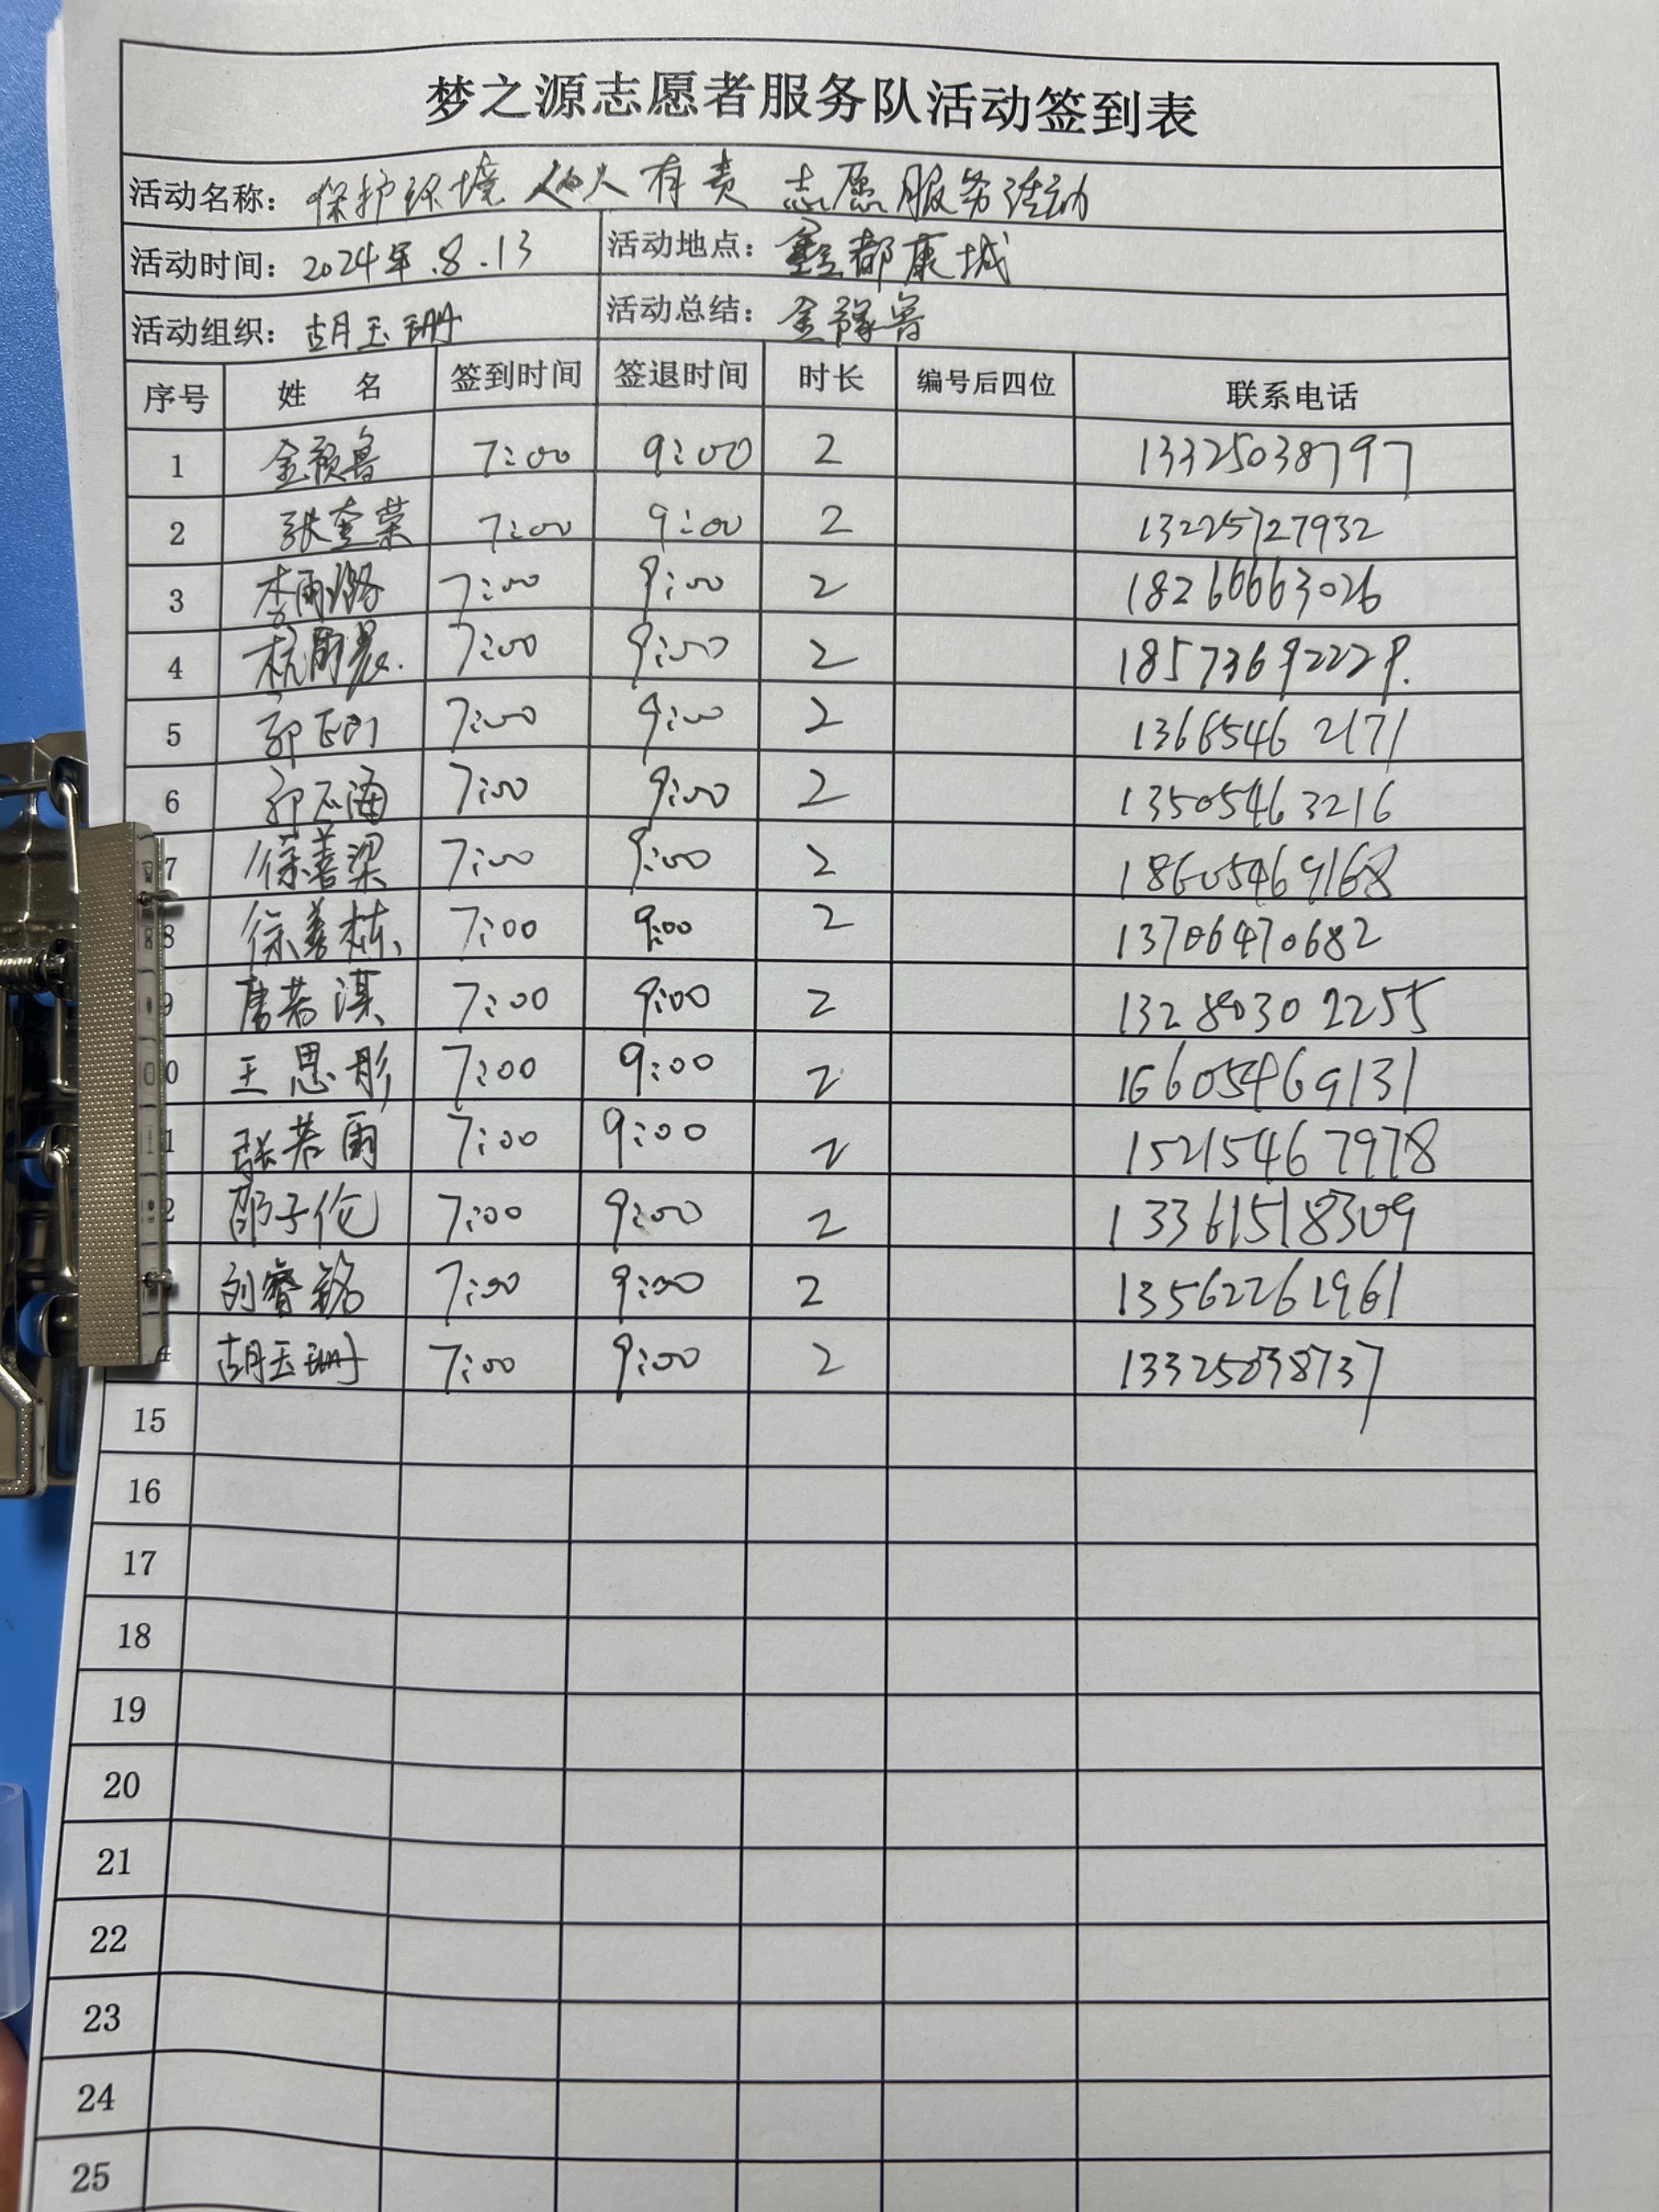 梦之源志愿者服务队活动签到表
活动名称：保护环境 人人有责 志愿服务活动
活动时间：2024年.8.13 活动地点：鑫都康城
活动组织：胡玉珊 活动总结：金豫鲁
序号 姓 名 签到时间 签退时间 时长 编号后四位 联系电话
1 金颖鲁 7:00 9:00 2 13325038797
2 张奎荣 7:00 9:00 2 13225727932
3 李雨璐 7:00 9:00 2 18266663026
4 杭 7:00 9:00 2 18573692229.
5 7:00 9:00 2 1366546 2171
6 7:00 9:00 2 1350546 3216
7 徐善梁 7:00 9:00 2 18605469168
8 徐善栋 7:00 9:00 2 13706470682
9 唐若淇 7:00 9:00 2 1328030 2255
0 王思彤 7:00 9:00 2 16605469131
1 张若雨 7:00 9:00 2 1521546 7978
2 邵子伦 7:00 9:00 2 13361518309
刘睿铭 7:00 9:00 2 13562261961
4 胡玉珊 7:00 9:00 2 13325038737
15
16
17
18
19
20
21
22
23
24
25